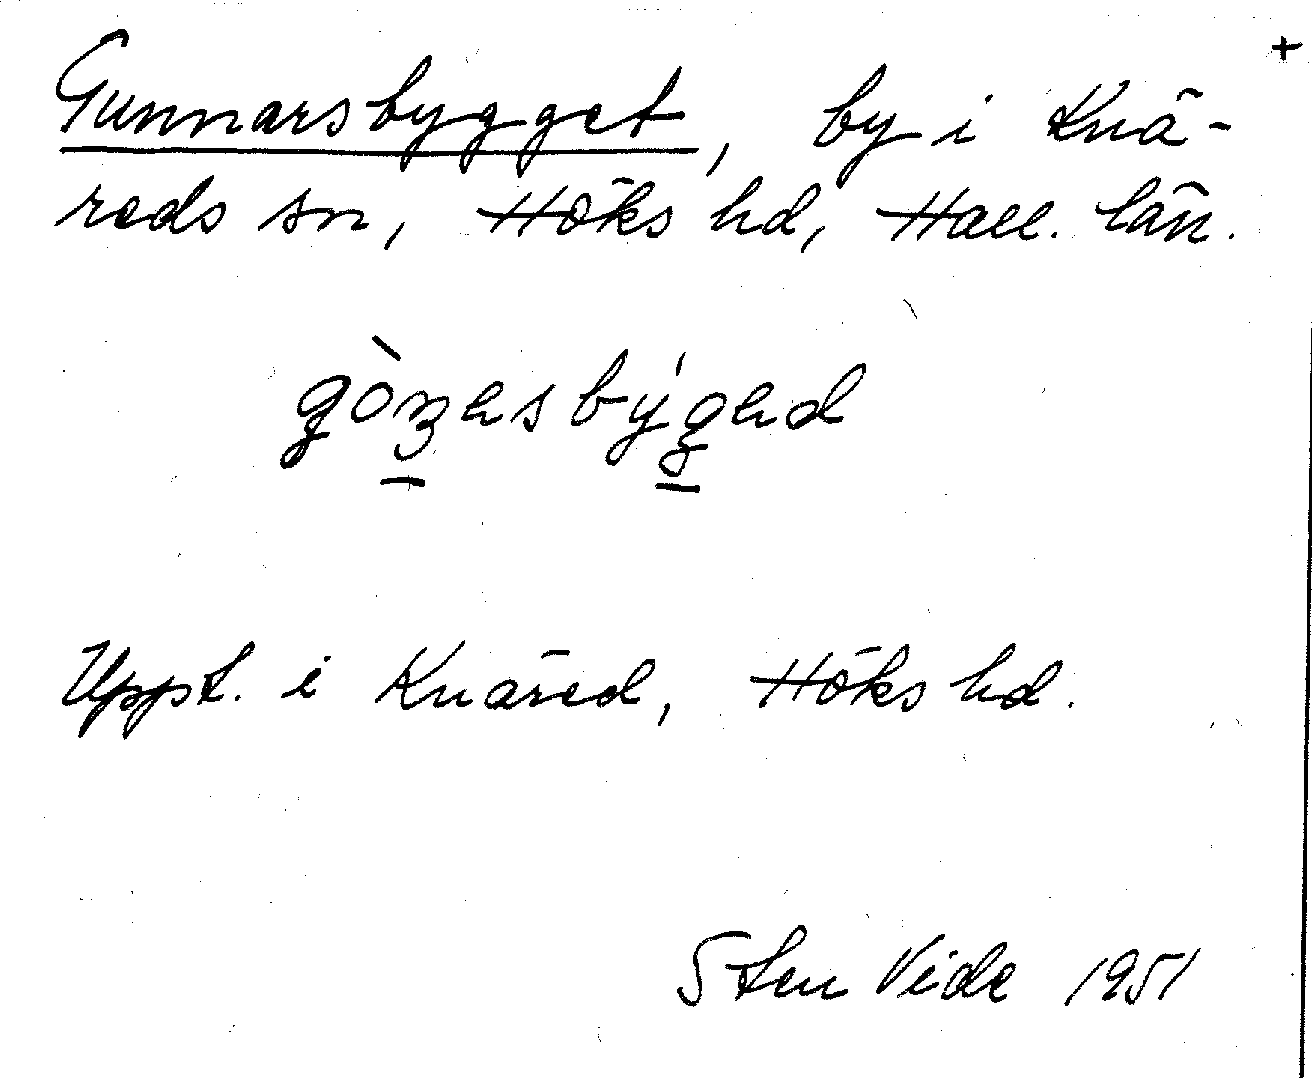 +
Gunnarsbygget, by i Knä-
reds sn, Höks hd, Hall. län.
Uppt. i Knäred, Höks hd.
Sten Vide 1951